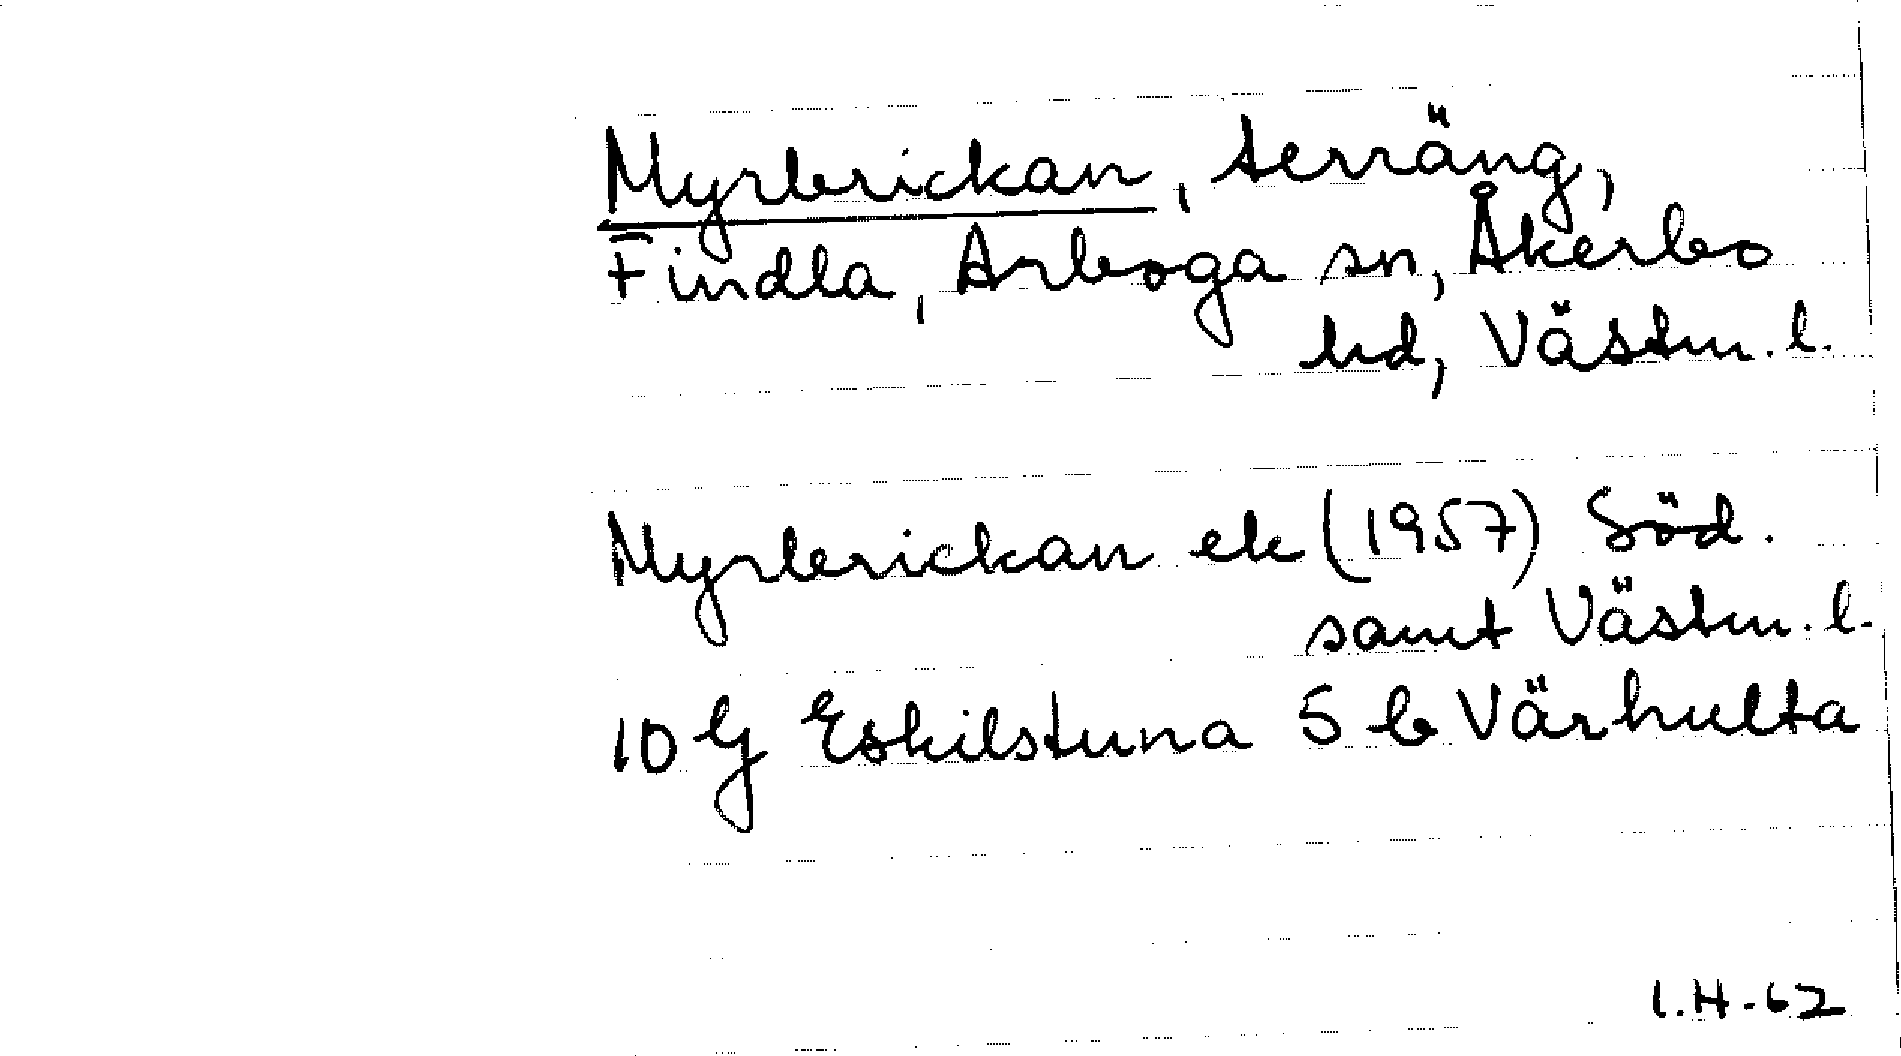 Myrbrickan, terräng,
Findla, Arboga sn, Åkerbo
hd, Västm. l.
Myrbrickan ek (1957) Söd.
samt Västm. l.
10 G Eskilstuna 5 b Värhulta
I.H-62